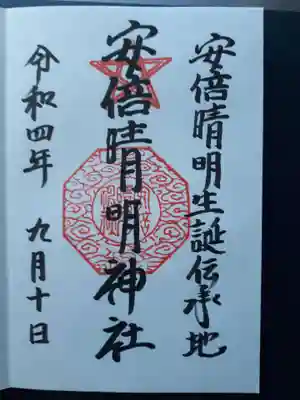 安倍晴明生誕伝承地
安倍晴明神社
令和四年 九月十日